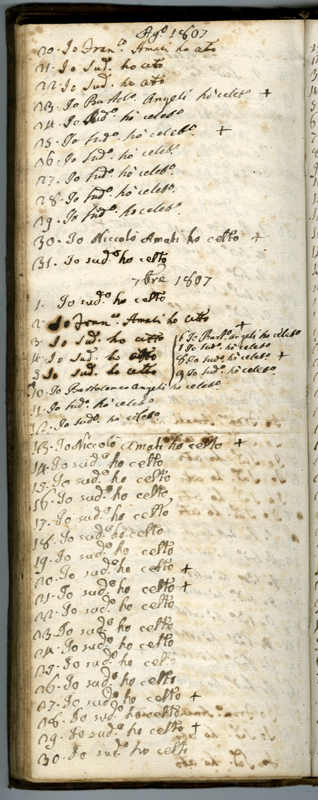 Ag.º 1807
20. Io Fran.º Amati ho cto
21. Io sud.º ho cto
22. Io sud.º ho cto
23. Io Bartolº Angeli ho celebº +
24. Io sud.º ho celebº
25. Io sud.º ho celebº +
26. Io sud.º ho celebº
27. Io sud.º ho celebº
28. Io sud.º ho celebº
29. Io sud.º ho celebº
30. Io Niccolò Amati ho celto +
31. Io sud.º ho celto
7bre 1807
1. Io sud.º ho celto
2. Io Fran.º Amati ho cto +
3. Io sud.º ho cto
4. Io sud.º ho cto
5. Io sud.º ho cto
6 Io Bartº Angeli ho celebº
7 Io sudº ho celebº
8 Io sudº ho celebº +
9 Io sudº ho celebº
10. Io Bartolomeo Angeli ho celebº
11. Io sud.º ho celebº
12. Io sud.º ho celebº
13. Io Niccolò Amati ho celto +
14. Io sud.º ho celto
15. Io sud.º ho celto
16. Io sud.º ho celto
17. Io sud.º ho celto
18. Io sud.º ho celto
19. Io sud.º ho celto
20. Io sud.º ho celto +
21. Io sud.º ho celto +
22. Io sud.º ho celto
23. Io sud.º ho celto
24. Io sud.º ho celto
25. Io sud.º ho celto
26. Io sud.º ho celto
27. Io sud.º ho celto +
28. Io sud.º ho celto
29. Io sud.º ho celto +
30. Io sud.º ho celto